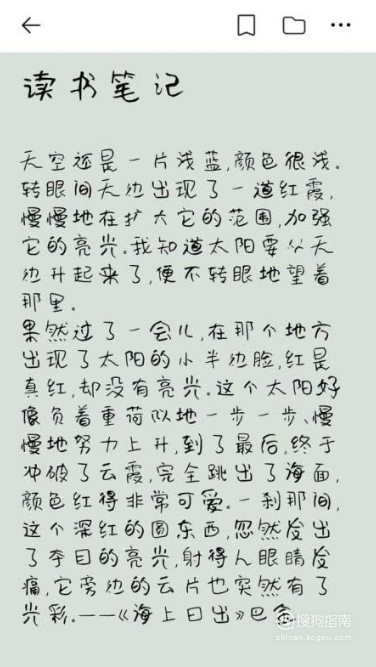 读书笔记
天空还是一片浅蓝,颜色很浅。
转眼间天边出现了一道红霞,
慢慢地在扩大它的范围,加强
它的亮光。我知道太阳要从天
边升起来了,便不转眼地望着
那里。
果然过了一会儿,在那个地方
出现了太阳的小半边脸,红是
真红,却没有亮光。这个太阳好
像负着重荷似地一步一步、慢
慢地努力上升,到了最后,终于
冲破了云霞,完全跳出了海面,
颜色红得非常可爱。一刹那间,
这个深红的圆东西,忽然发出
了夺目的亮光,射得人眼睛发
痛,它旁边的云片也突然有了
光彩.——《海上日出》巴金
搜狗指南
zhinan.sogou.com